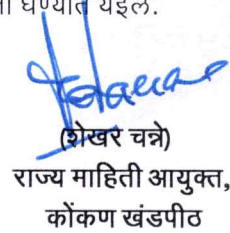 घेण्यात येईल.
(शेखर चन्ने)
राज्य माहिती आयुक्त,
कोंकण खंडपीठ